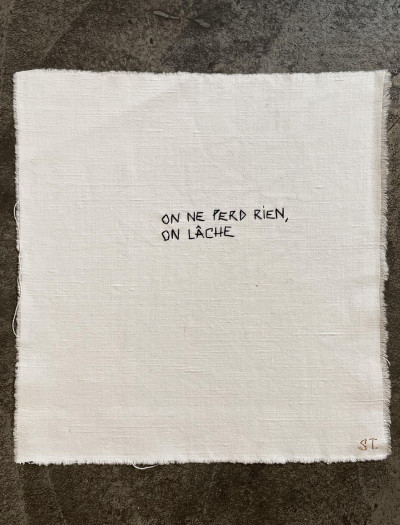 ON NE PERD RIEN,
ON LÂCHE
ST.